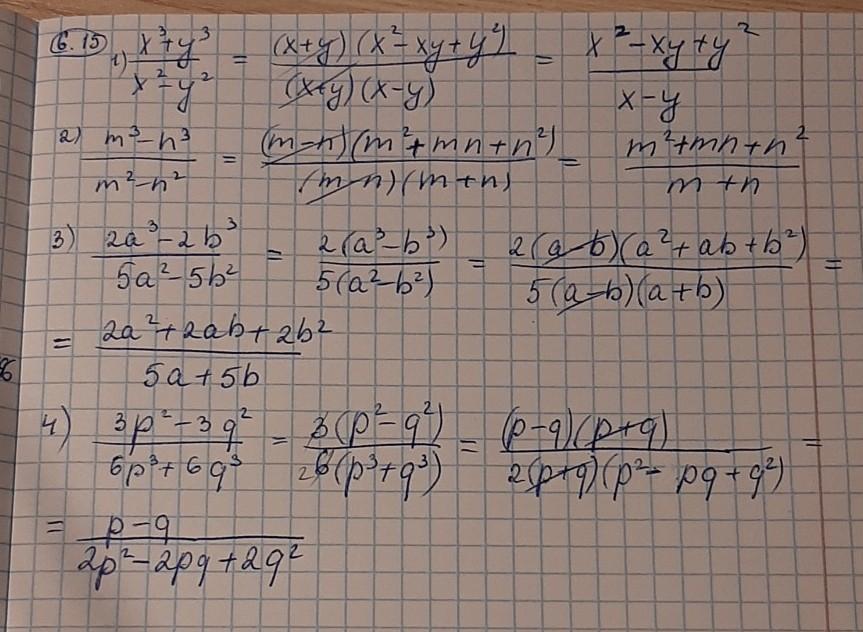 6.15 1) \frac{x^3+y^3}{x^2-y^2} = \frac{(x+y)(x^2-xy+y^2)}{(x+y)(x-y)} = \frac{x^2-xy+y^2}{x-y}
2) \frac{m^3-n^3}{m^2-n^2} = \frac{(m-n)(m^2+mn+n^2)}{(m-n)(m+n)} = \frac{m^2+mn+n^2}{m+n}
3) \frac{2a^3-2b^3}{5a^2-5b^2} = \frac{2(a^3-b^3)}{5(a^2-b^2)} = \frac{2(a-b)(a^2+ab+b^2)}{5(a-b)(a+b)} =
= \frac{2a^2+2ab+2b^2}{5a+5b}
4) \frac{3p^2-3q^2}{6p^3+6q^3} = \frac{3(p^2-q^2)}{2 6(p^3+q^3)} = \frac{(p-q)(p+q)}{2(p+q)(p^2-pq+q^2)} =
= \frac{p-q}{2p^2-2pq+2q^2}